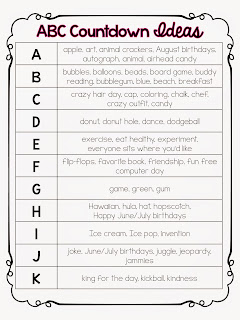 ABC Countdown Ideas
A
apple, art, animal crackers, August birthdays,
autograph, animal, airhead candy
B
bubbles, balloons, beads, board game, buddy
reading, bubblegum, blue, beach, breakfast
C
crazy hair day, cap, coloring, chalk, chef,
crazy outfit, candy
D
donut, donut hole, dance, dodgeball
E
exercise, eat healthy, experiment,
everyone sits where you'd like
F
flip-flops, favorite book, friendship, fun free
computer day
G
game, green, gum
H
Hawaiian, hula, hat, hopscotch,
Happy June/July birthdays
I
Ice cream, Ice pop, invention
J
joke, June/July birthdays, juggle, jeopardy,
jammies
K
king for the day, kickball, kindness